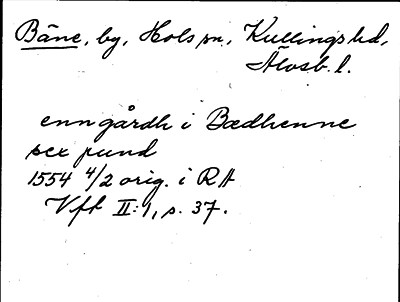 Bäne, by, Hols sn., Kullings hd,
Älvsb. l.
enn gårdh i Bædhenne
sex pund
1554 4/2 orig. i RA
Vft II:1, s. 37.